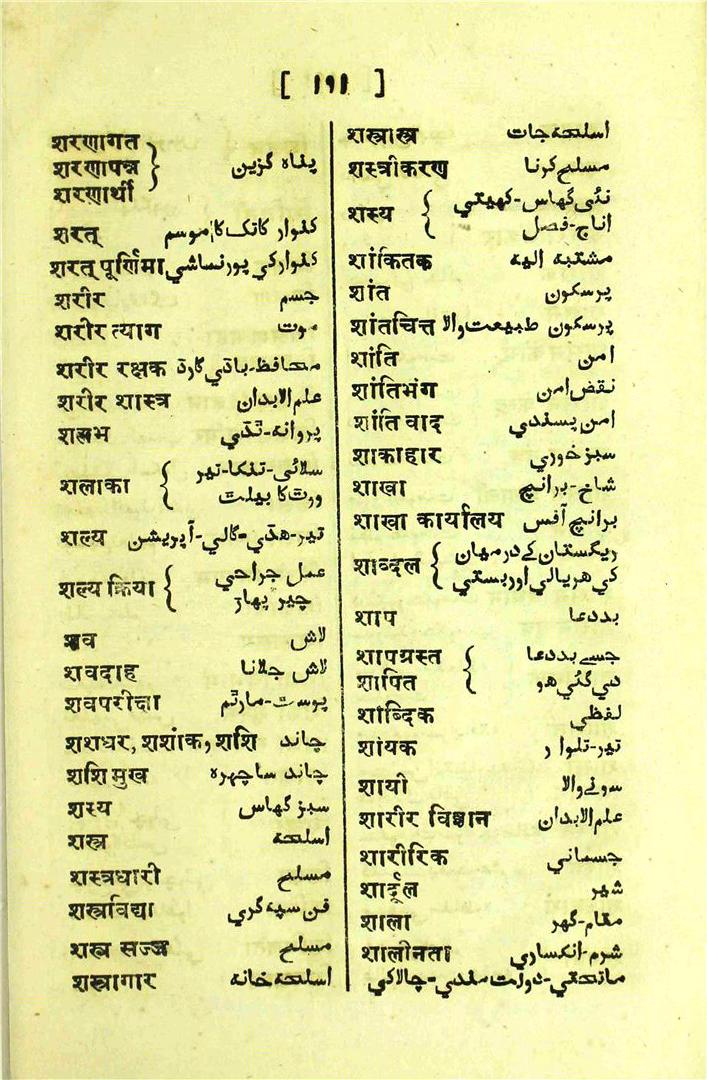 [ ۱۹۱ ]
शरणागत
शरणापन्न } پناہ گزین
शरणार्थी
शरत् کنوار کاتک کا موسم
शरत् पूर्णिमा کنوار کی پورنماشی
शरीर جسم
शरीर त्याग موت
शरीर रक्षक محافظ-باڈی گارڈ
शरीर शास्त्र علم الابدان
शलभ پروانہ-ٹڈی
शलाका { سلائی-تنکا-تیر
ورت کا بیلٹ
शल्य تیر-ھڈی-گالی-آپریشن
शल्य क्रिया { عمل جراحی
چیر پھاڑ
शव لاش
शवदाह لاش جلانا
शवपरीक्षा پوسٹ-مارٹم
शशधर, शशांक, शशि چاند
शशि मुख چاند سا چہرہ
शस्य سبز گھاس
शस्त्र اسلحہ
शस्त्रधारी مسلح
शस्त्रविद्या فن سپہ گری
शस्त्र सज्ज مسلح
शस्त्रागार اسلحہ خانہ
शस्त्रास्त्र اسلحہ جات
शस्त्रीकरण مسلح کرنا
शस्य { نئی گھاس-کھیتی
اناج-فصل
शांकितक مشتبہ الیہ
शांत پرسکون
शांतचित्त پرسکون طبیعت والا
शांति امن
शांतिभंग نقض امن
शांति वाद امن پسندی
शाकाहार سبز خوری
शाखा شاخ-برانچ
शाखा कार्यालय برانچ آفس
शाब्दल { ریگستان کے درمیان
کی ھریالی اور بستی
शाप بددعا
शापग्रस्त { جسے بددعا
शापित دی گئی ھو
शाब्दिक لفظی
शायक تیر-تلوار
शायी سونے والا
शारीर विज्ञान علم الابدان
शारीरिक جسمانی
शार्दूल شیر
शाला مقام-گھر
शालीनता شرم-انکساری
ماتحتی-دولت مندی-چالاکی